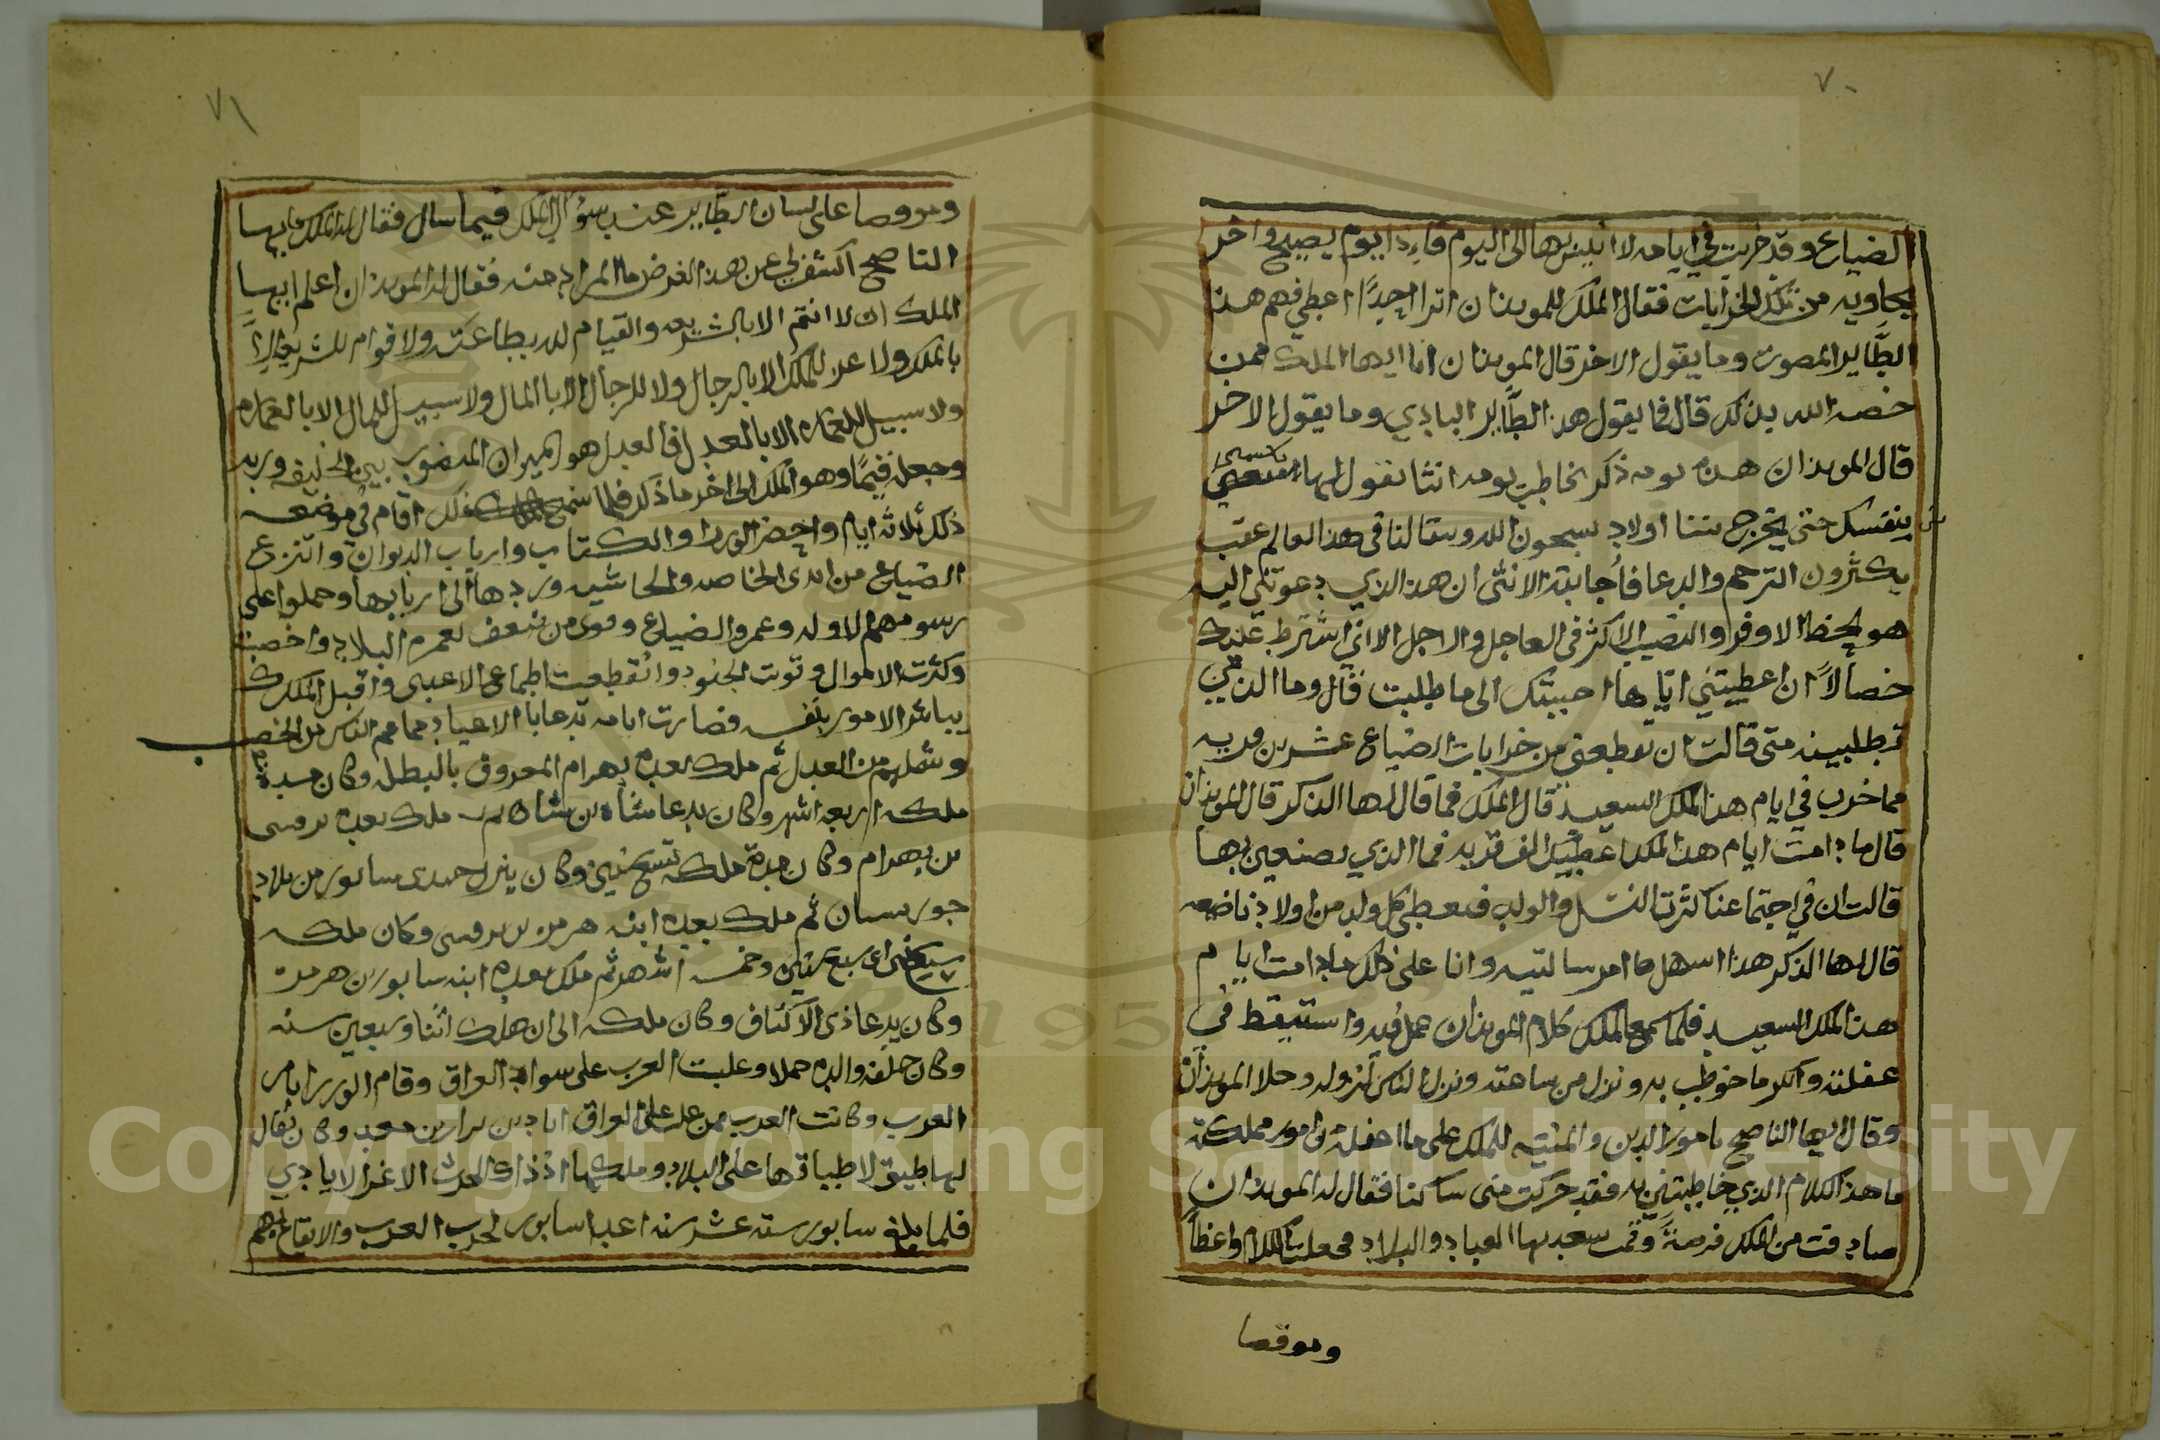 ٧٠
الضياع وقد خربت في ايامه لا انيس بها الى اليوم فاءذا بيوم يصيح واخر
يجاوبه من تلك الخرابات فقال الملك للموبذان اترا احدًا اعطي فهم هذا
الطَّاير المصوت وما يقول الاخر قال الموبذان انا ايها الملك ممن
خصه الله بذلك قال فما يقول هذا الطَّاير البادي وما يقول الاخر
قال الموبذان هذه بومه ذكر يخاطب بومه انثا يقول لها امتعيني
بنفسك حتى يخرج مننا اولاد يسبحون الله ويبقا لنا في هذا العالم عقب
يكثرون الترحم والدعا فأجابته الانثى ان هذا الذي دعوتني اليه
هو الحظ الاوفر والنصيب الاكثر في العاجل والاجل الا اني اشترط عليك
خصالاً ان اعطيتني ايّاها اجبتك الى ما طلبت قال وما الذي
تطلبينه مني قالت ان تعطيني من خرابات الضياع عشرين قريه
مما خرب في ايام هذا الملك السعيد قال الملك فما قال لها الذكر قال الموبذان
قال ما دامت ايام هذا الملك اعطيتك الف قريه فما الذي تصنعين بها
قالت ان في اجتماعنا كثرت النسل والولد فنعطي كل ولد من اولادنا ضيعه
قال لها الذكر هذا اسهل ما امر سالتيه وانا على ذلك ما دامت ايام
هذا الملك السعيد فلما سمع الملك كلام الموبذان عمل فيه واستيقظ في
غفلته وافكر ما خوطب به ونزل من ساعته ونزل الناس لنزوله وخلا الموبذان
وقال ايها الناصح بامور الدين والمنبه للملك على ما اغفله من امور مملكته
ما هذا الكلام الذي خاطبتني به فقد حركت مني ساكنا فقال له الموبذان
صادفت من الملك فرصةً وقمت سعد بها العباد والبلاد فجعلت الكلام واعظاً
وموقصا
٧١
وموقصا على لسان الطَّاير عند سؤال الملك فيما سال فقال له الملك ايها
الناصح اكشف لي عن هذا الغرض ما المراد منه فقال له الموبذان اعلم ايها
الملك ان لا انتم الا بالشريعه والقيام لله بطاعته ولا قوام للشريعه الاَّ
بالملك ولا عز للملك الا بالرجال ولا للرجال الا با المال ولا سبيل للمال الا با العماره
ولا سبيل للعماره الا با العدل فا العدل هو الميزان المنصوب بين الخليفه وربه
وجعله قيمًا وهو الملك الى اخر ما ذكر فلما سمع الملك ذلك اقام في موضعه
ذلك ثلاثه ايام واحضر الوزرا والكتاب وارباب الديوان وانتزع
الضياع من ايدى الخاصه والحاشيه وردها الى اربابها وحملوا على
رسومهم الاوله وعمر والضياع وقوى من ضعف لعمرهم البلاد واخصبت
وكثرت الاموال وقوت الجنود وانقطعت اطماع الاعدى واقبل الملك
يباشر الامور بنفسه فصارت ايامه تدعا با الاعياد مما عم الناس من الخصب
وشملهم من العدل ثم ملك بعده بهرام المعروف بالبطل وكان مدة
ملكه اربعه اشهر وكان يدعا شاه بن شاه ثم ملك بعده نرسى
بن بهرام وكان مدة ملكه تسع سنين وكان ينزل جندى سابور من بلاد
خورسان ثم ملك بعده ابنه هرمز بن نرسى وكان ملكه
سبع سنين وخمسه اشهر ثم ملك بعده ابنه سابور بن هرمز
وكان يدعا ذى الاكتاف وكان ملكه الى ان هلك اثنا وسبعين سنه
وكان خلفه والده حملا وغلبت العرب على سواد العراق وقام الوزر ايام
العرب وكانت العرب ممن غلب على العراق اياد بن نزار بن معد وكان يقال
لها طبق لاطباقها على البلاد وملكها اذ ذاك الحرث الاغر الايادي
فلما بلغ سابور سته عشر سنه اعد اسابور لحرب العرب والايقاع بهم